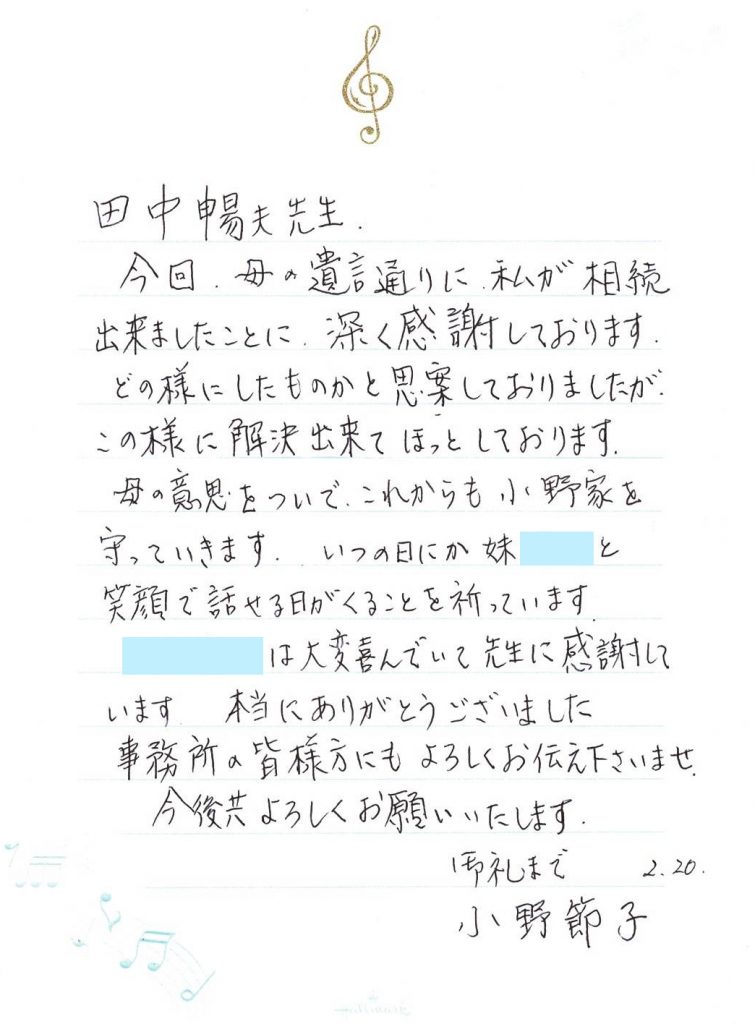 田中暢夫先生.
今回、母の遺言通りに、私が相続
出来ましたことに、深く感謝しております.
どの様にしたものかと思案しておりましたが、
この様に解決出来てほっとしております.
母の意思をついで、これからも小野家を
守っていきます. いつの日にか妹と
笑顔で話せる日がくることを祈っています.
は大変喜んでいて先生に感謝して
います 本当にありがとうございました
事務所の皆様方にもよろしくお伝え下さいませ.
今後共よろしくお願いいたします.
御礼まで 2.20.
小野節子